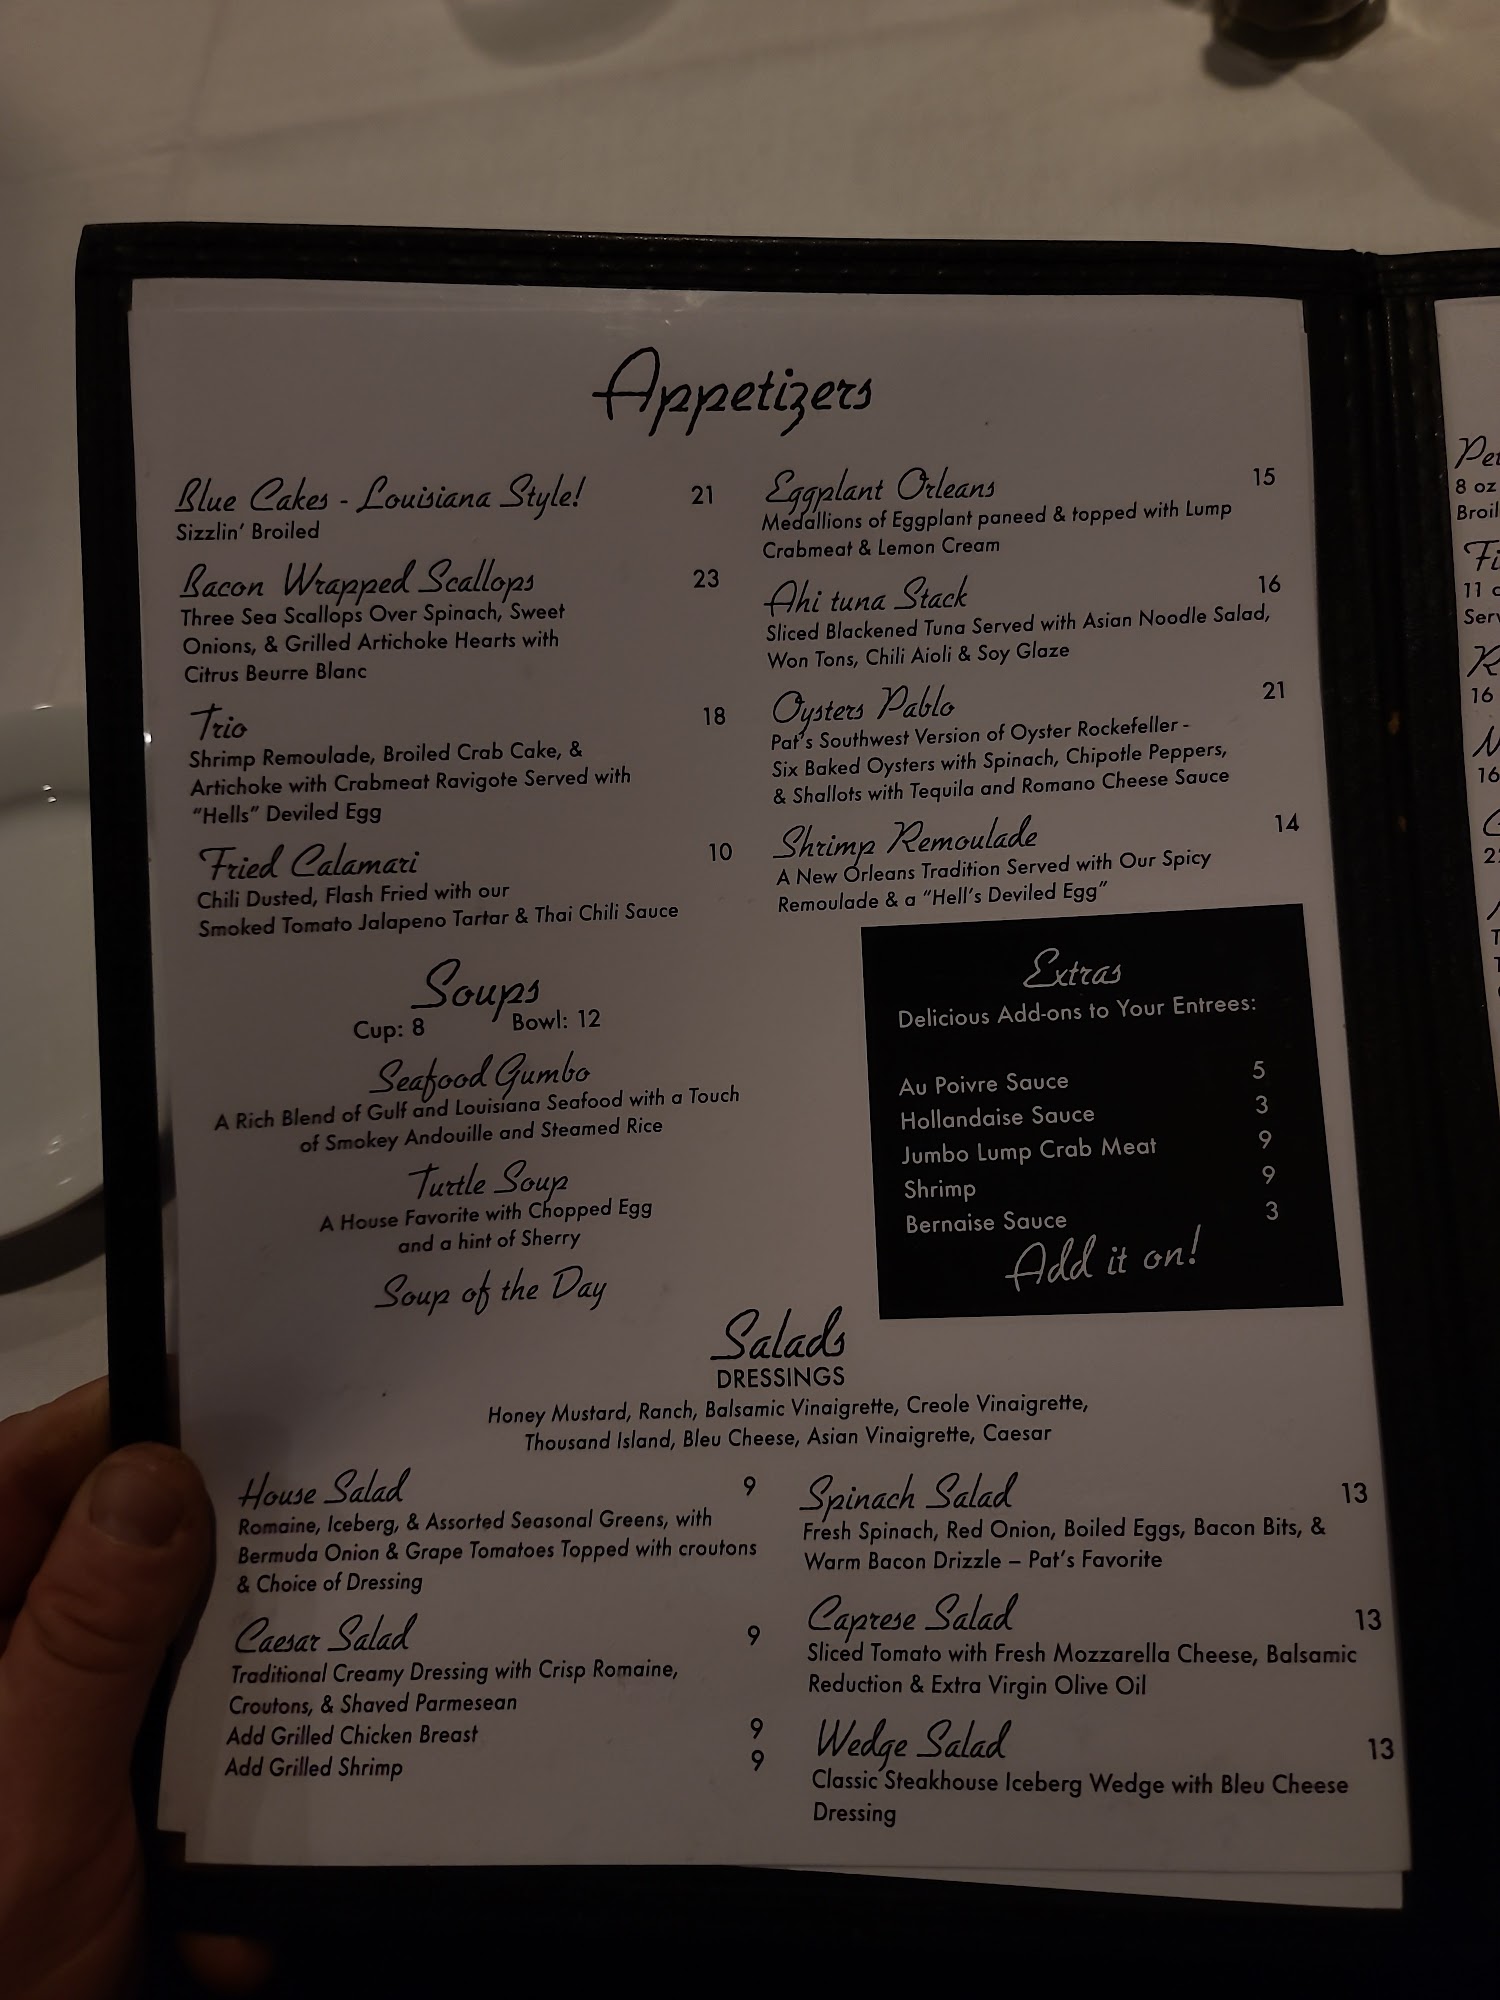 Appetizers
Blue Cakes - Louisiana Style! 21
Sizzlin' Broiled
Bacon Wrapped Scallops 23
Three Sea Scallops Over Spinach, Sweet
Onions, & Grilled Artichoke Hearts with
Citrus Beurre Blanc
Trio 18
Shrimp Remoulade, Broiled Crab Cake, &
Artichoke with Crabmeat Ravigote Served with
"Hells" Deviled Egg
Fried Calamari 10
Chili Dusted, Flash Fried with our
Smoked Tomato Jalapeno Tartar & Thai Chili Sauce
Eggplant Orleans 15
Medallions of Eggplant paneed & topped with Lump
Crabmeat & Lemon Cream
Ahi tuna Stack 16
Sliced Blackened Tuna Served with Asian Noodle Salad,
Won Tons, Chili Aioli & Soy Glaze
Oysters Pablo 21
Pat's Southwest Version of Oyster Rockefeller -
Six Baked Oysters with Spinach, Chipotle Peppers,
& Shallots with Tequila and Romano Cheese Sauce
Shrimp Remoulade 14
A New Orleans Tradition Served with Our Spicy
Remoulade & a "Hell's Deviled Egg"
Soups
Cup: 8 Bowl: 12
Seafood Gumbo
A Rich Blend of Gulf and Louisiana Seafood with a Touch
of Smokey Andouille and Steamed Rice
Turtle Soup
A House Favorite with Chopped Egg
and a hint of Sherry
Soup of the Day
Extras
Delicious Add-ons to Your Entrees:
Au Poivre Sauce 5
Hollandaise Sauce 3
Jumbo Lump Crab Meat 9
Shrimp 9
Bernaise Sauce 3
Add it on!
Salads
DRESSINGS
Honey Mustard, Ranch, Balsamic Vinaigrette, Creole Vinaigrette,
Thousand Island, Bleu Cheese, Asian Vinaigrette, Caesar
House Salad 9
Romaine, Iceberg, & Assorted Seasonal Greens, with
Bermuda Onion & Grape Tomatoes Topped with croutons
& Choice of Dressing
Caesar Salad 9
Traditional Creamy Dressing with Crisp Romaine,
Croutons, & Shaved Parmesean
Add Grilled Chicken Breast 9
Add Grilled Shrimp 9
Spinach Salad 13
Fresh Spinach, Red Onion, Boiled Eggs, Bacon Bits, &
Warm Bacon Drizzle – Pat's Favorite
Caprese Salad 13
Sliced Tomato with Fresh Mozzarella Cheese, Balsamic
Reduction & Extra Virgin Olive Oil
Wedge Salad 13
Classic Steakhouse Iceberg Wedge with Bleu Cheese
Dressing
8 oz
16
16